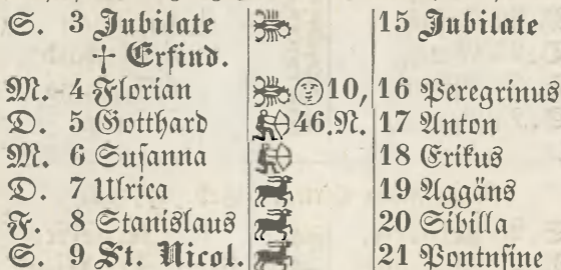 S. 3 Jubilate 15 Jubilate
† Erfind.
M. 4 Florian 10, 16 Peregrinus
D. 5 Gotthard 46. N. 17 Anton
M. 6 Susanna 18 Erikus
D. 7 Ulrica 19 Aggäns
F. 8 Stanislaus 20 Sibilla
S. 9 St. Nicol. 21 Pontnsine